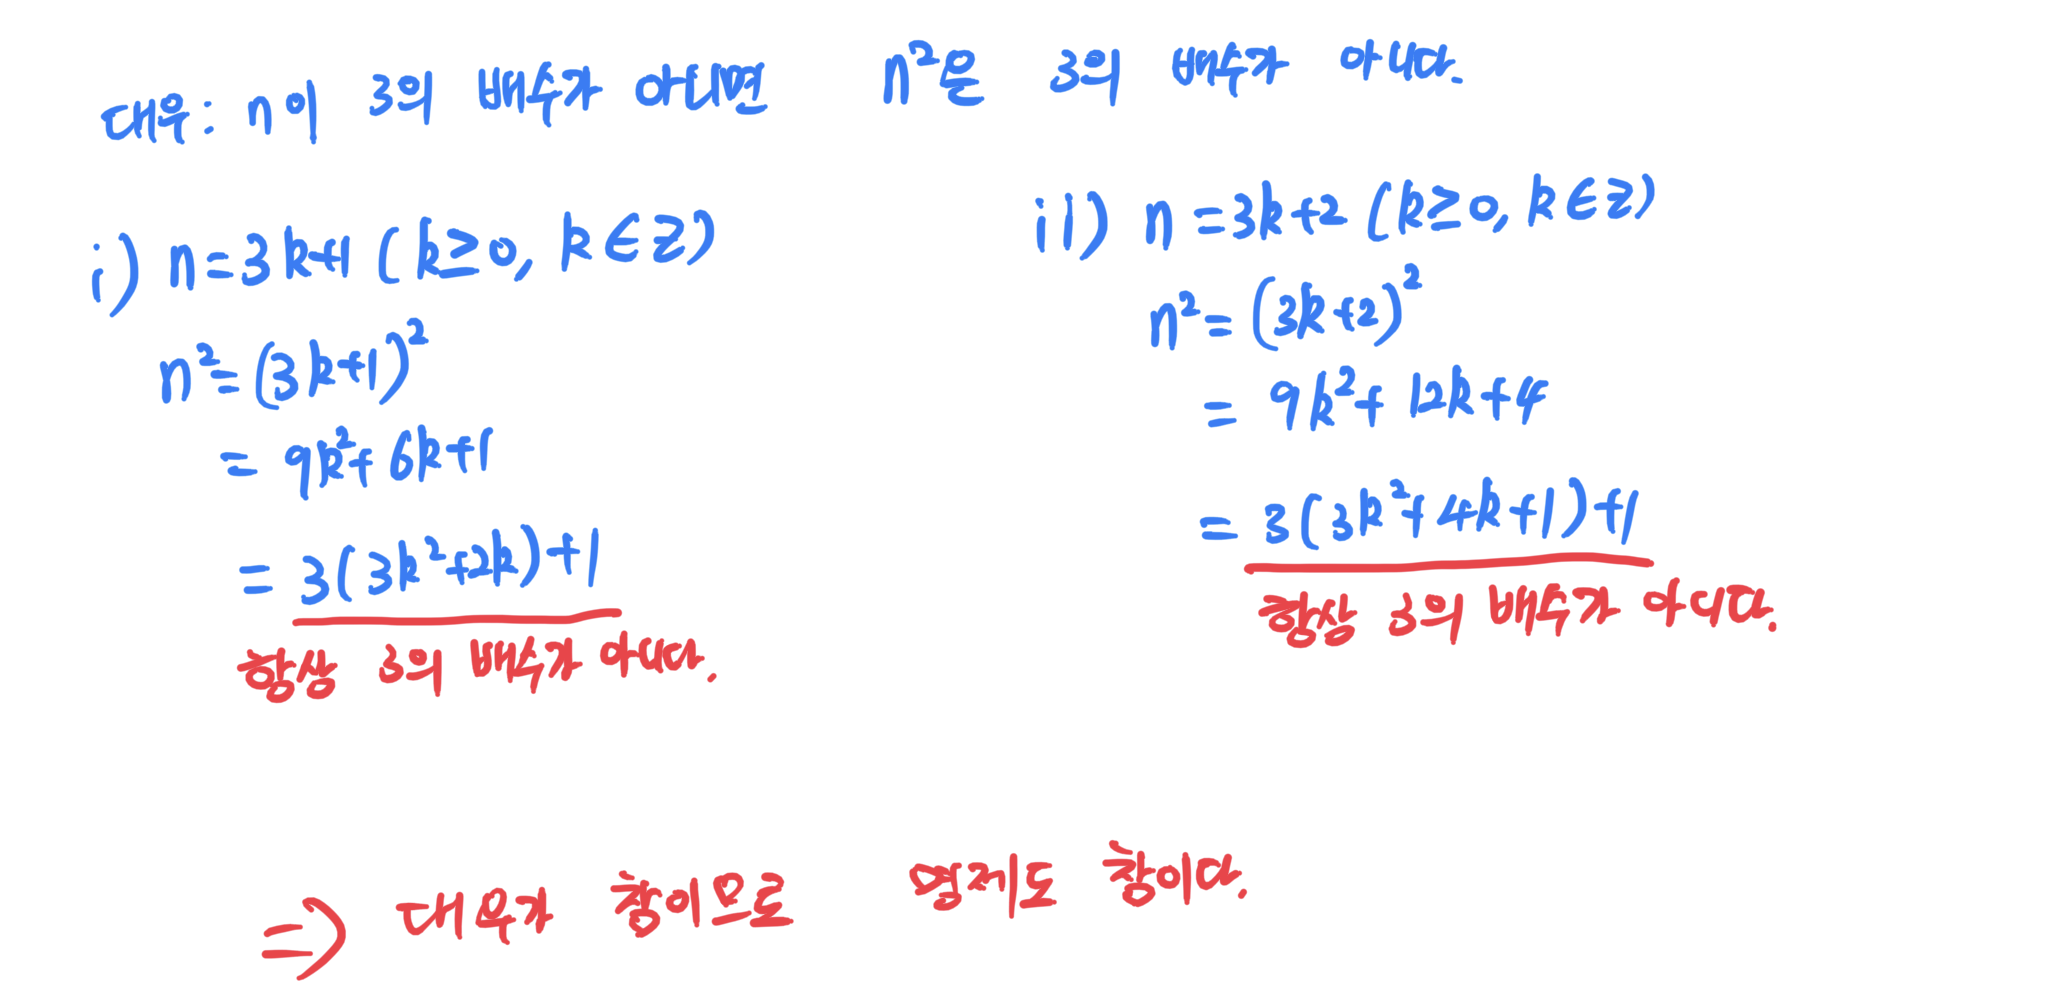 대우: n이 3의 배수가 아니면 n²은 3의 배수가 아니다.
i) n=3k+1 (k≥0, k∈Z)
n²=(3k+1)²
= 9k²+6k+1
= 3(3k²+2k)+1
항상 3의 배수가 아니다.
ii) n=3k+2 (k≥0, k∈Z)
n²=(3k+2)²
= 9k²+12k+4
= 3(3k²+4k+1)+1
항상 3의 배수가 아니다.
⇒ 대우가 참이므로 명제도 참이다.